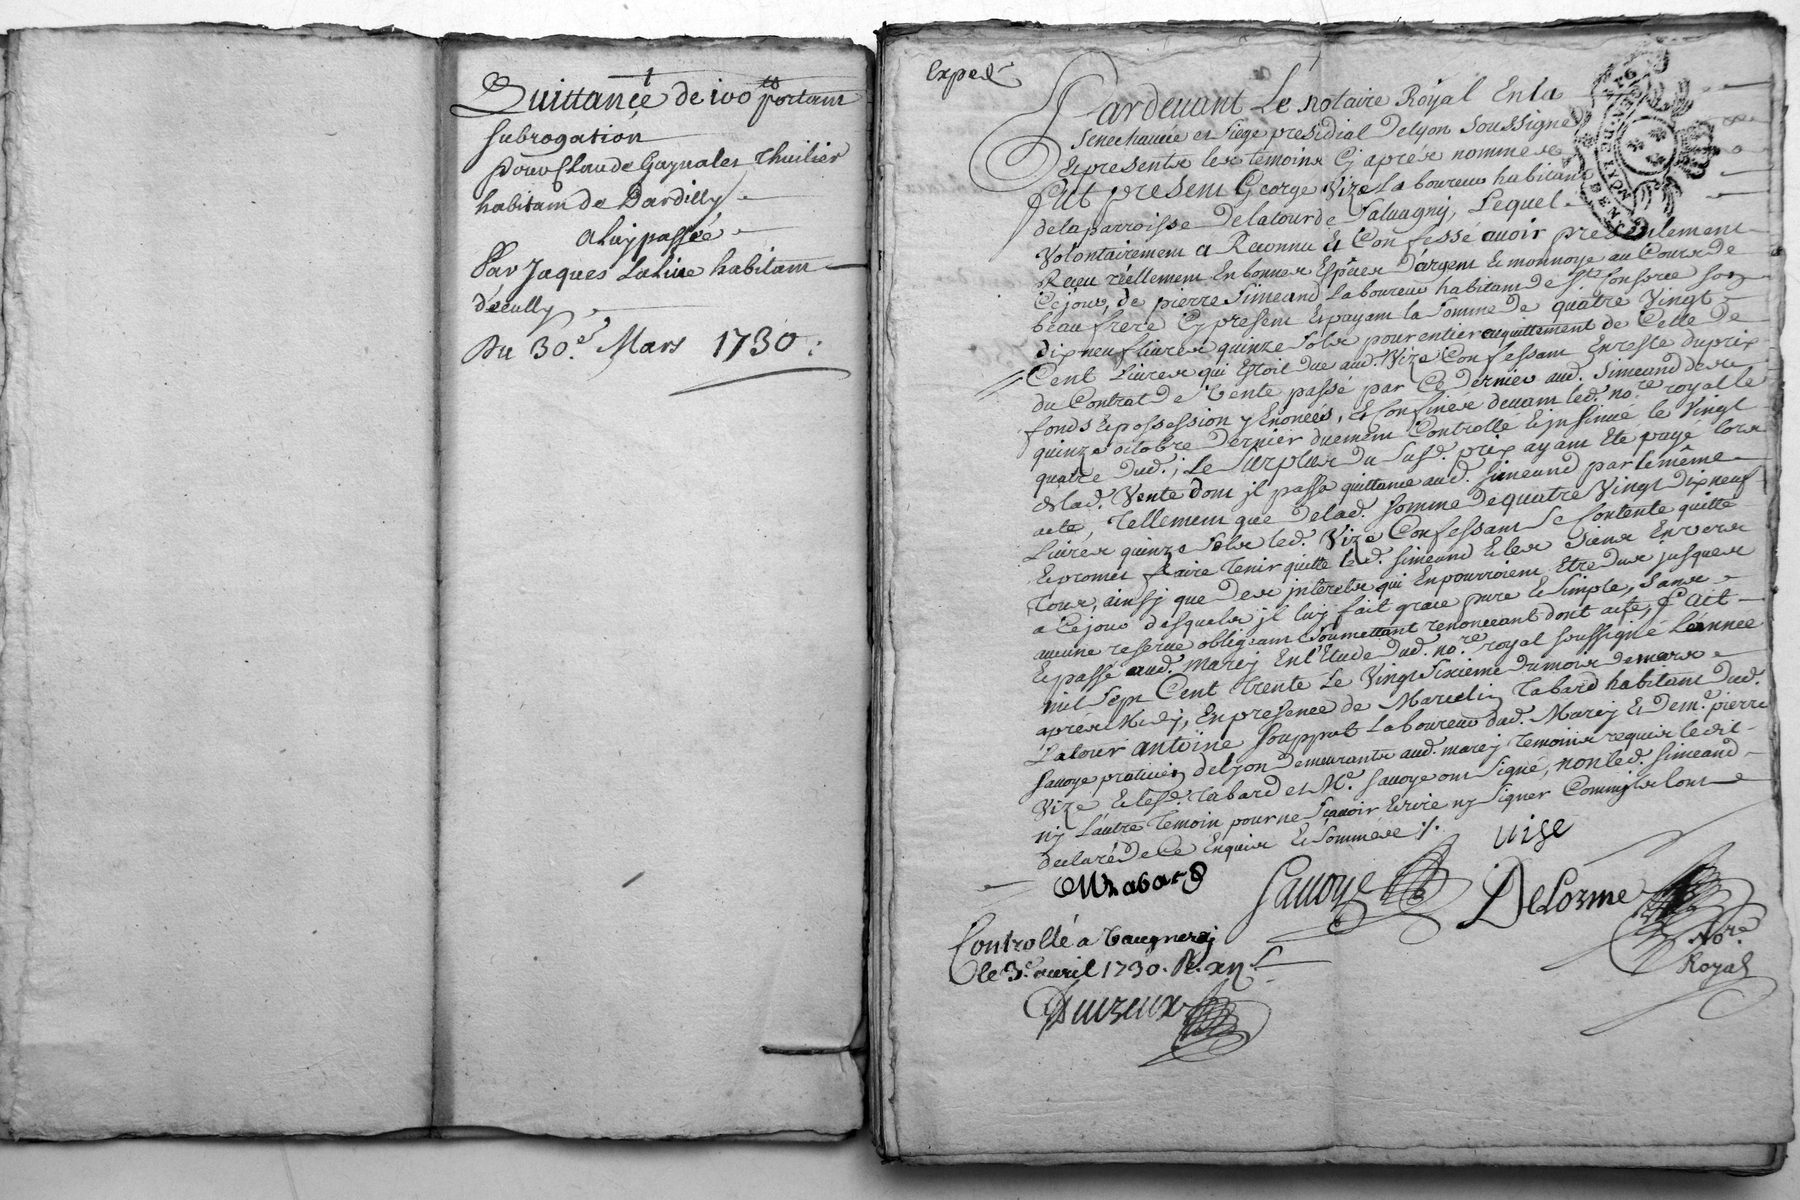 Quittance de 100 lt portant
subrogation
pour Claude Gaynales Thuilier
habitant de Dardilly
a luy passée
Par Jaques habitant
d'ecully
Du 30.e Mars 1730.
Exped.
Pardevant Le notaire Royal En la
senechaucée et siege presidial de Lyon soussigné
Et presents les temoins Cy aprés nommés
fut present George Vize Laboureur habitant
de la parroisse de la tour de Salvagny, Lequel
Volontairement a Reconnu Et Confessé avoir presentement
Receu réellement En bonnes Espéces d'argent Et monnoye au Cours de
Ce jour, de pierre Simeand Laboureur habitant de Ste Consorce son
beaufrere Cy present Et payant la somme de quatre Vingt
dix neuf livres quinze sols pour entier acquittement de Celle de
Cent Livres qui Estoit due aud. Vize Confessant En reste du prix
du Contrat de Vente passé par Ce dernier aud. Simeand des
fonds Et possession y Enoncés, Et Confinés devant led. no.re royal le
quinze octobre dernier duement Controllé Et insinué le Vingt
quatre dud., Le surplus du susd. prix ayant Eté payé lors
de lad. Vente dont il passa quittance aud. Simeand par le même
acte, Tellement que de lad. somme de quatre Vingt dix neuf
Livres quinze sols led. Vize Confessant se Contente quitte
Et promet faire tenir quitte led. Simeand Et les siens Envers
Tous, ainsy que des interets qui En pourroient Etre dus jusques
a Ce jour desquels il luy fait grace pure Et simple, sans
aucune reserve obligeant soumettant renonceant dont acte, Fait
Et passé aud. Marcy En l'Etude dud. no.re royal soussigné L'année
mil sept Cent trente Le Vingt sixieme du mois de mars
aprés Midy, En presence de Marcelin Tabard habitant dud.
Latour antoine Souppat Laboureur dud. Marcy Et de m.e pierre
Savoye praticien de Lyon demeurants aud. marcy temoins requis led.
Vize Et les d. Tabard et M.e Savoye ont signé, non led. Simeand
ny L'autre temoin pour ne sçavoir Ecrire ny signer Comm'ils l'ont
declaré de Ce Enquis Et sommés ./.
Vize
M Tabard
Savoye
DeLorme
No.re
Royal
Controllé a Vaugneray
le 3.e avril 1730.